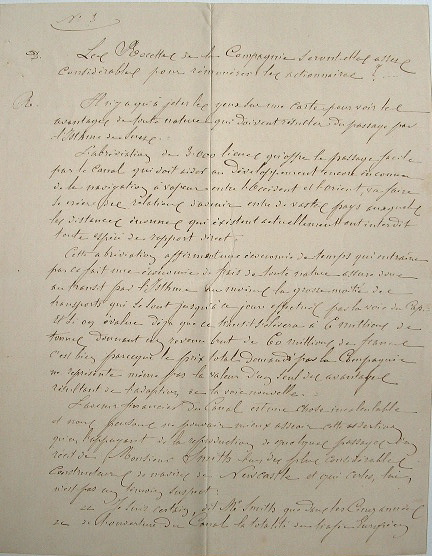 N° 3
D. Les Recettes de la Compagnie seront elles assez
considérables pour rémunérer les actionnaires ?
R. Il n'y a qu'à jeter les yeux sur une carte pour voir les
avantages de toute nature qui doivent résulter du passage par
l'Isthme de Suez.
L'abréviation de 3.000 lieues qu'offre le passage facile
par le Canal qui doit aider au développement encore inconnu
de la navigation à vapeur entre l'Occident et l'Orient, va faire
les relations d'avenir entre de vastes pays auxquels
les distances énormes qui existent actuellement ont interdit
toute espèce de rapport direct.
Cette abréviation affirmant une économie de temps qui entraine
par ce fait une économie de frais de toute nature assure donc
au transit par l'Isthme au moins la grosse moitié des
transports qui se sont jusqu'à ce jour effectués par la voie du Cap.
Et l'on évalue déjà que ce transit s'élèvera à 6 millions de
tonnes donnant un revenu brut de 60 millions de francs
c'est bien parce que le prix total demandé par la Compagnie
ne représente même pas la valeur d'un seul des avantages
résultant de l'adoption de la voie nouvelle.
L'avenir financier du Canal est une chose incalculable
et nous pensons ne pouvoir mieux asseoir cette assertion
qu'en l'appuyant de la reproduction de quelques passages du
récit de Monsieur Smith l'un des plus considérables
constructeurs de navires de Newcastle et qui certes, lui,
n'est pas un témoin suspect.
Je suis certain, dit Mr Smith que dans les cinq années
de l'ouverture du Canal la totalité du trafic Européen